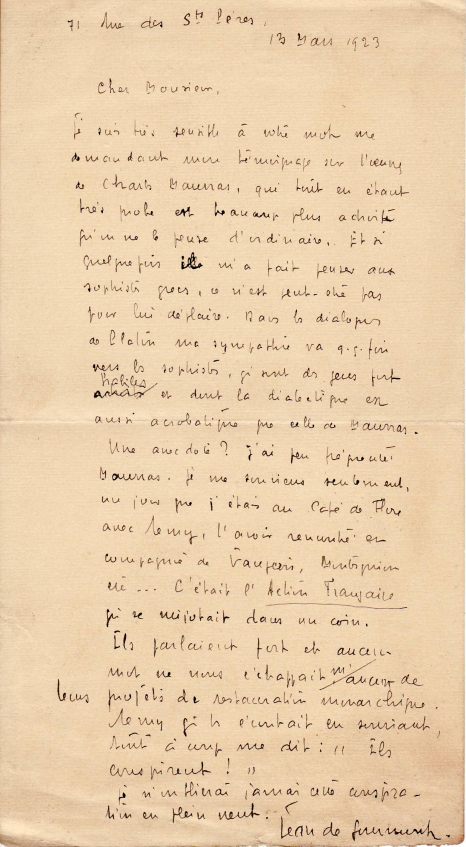 71 rue des Sts Pères,
13 Mars 1923
Cher Monsieur,
Je suis très sensible à votre mot me
demandant mon témoignage sur l'œuvre
de Charles Maurras, qui tout en étant
très probe est beaucoup plus
qu'on ne le pense d'ordinaire. Et si
quelquefois il m'a fait penser aux
sophistes grecs, ce n'est peut-être pas
pour lui déplaire. Dans les dialogues
de Platon ma sympathie va q.q. fois
vers les sophistes, qi sont des gens fort
habiles
et dont la dialectique est
aussi acrobatique que celle de Maurras.
Une anecdote ? J'ai peu fréquenté
Maurras. Je me souviens seulement,
un jour que j'étais au Café de Flore
avec Remy, l'avoir rencontré en
compagnie de Vaugeois, Montesquiou
etc... C'était l'Action Française
qi se mijotait dans un coin.
Ils parlaient fort et aucun
mot ne nous échappait ni aucun de
leurs projets de restauration monarchique.
Remy qi les écoutait en souriant,
tout à coup me dit : " Ils
conspirent ! "
Je n'oublierai jamais cette conspira-
tion en plein vent.
Jean de Gourmont.